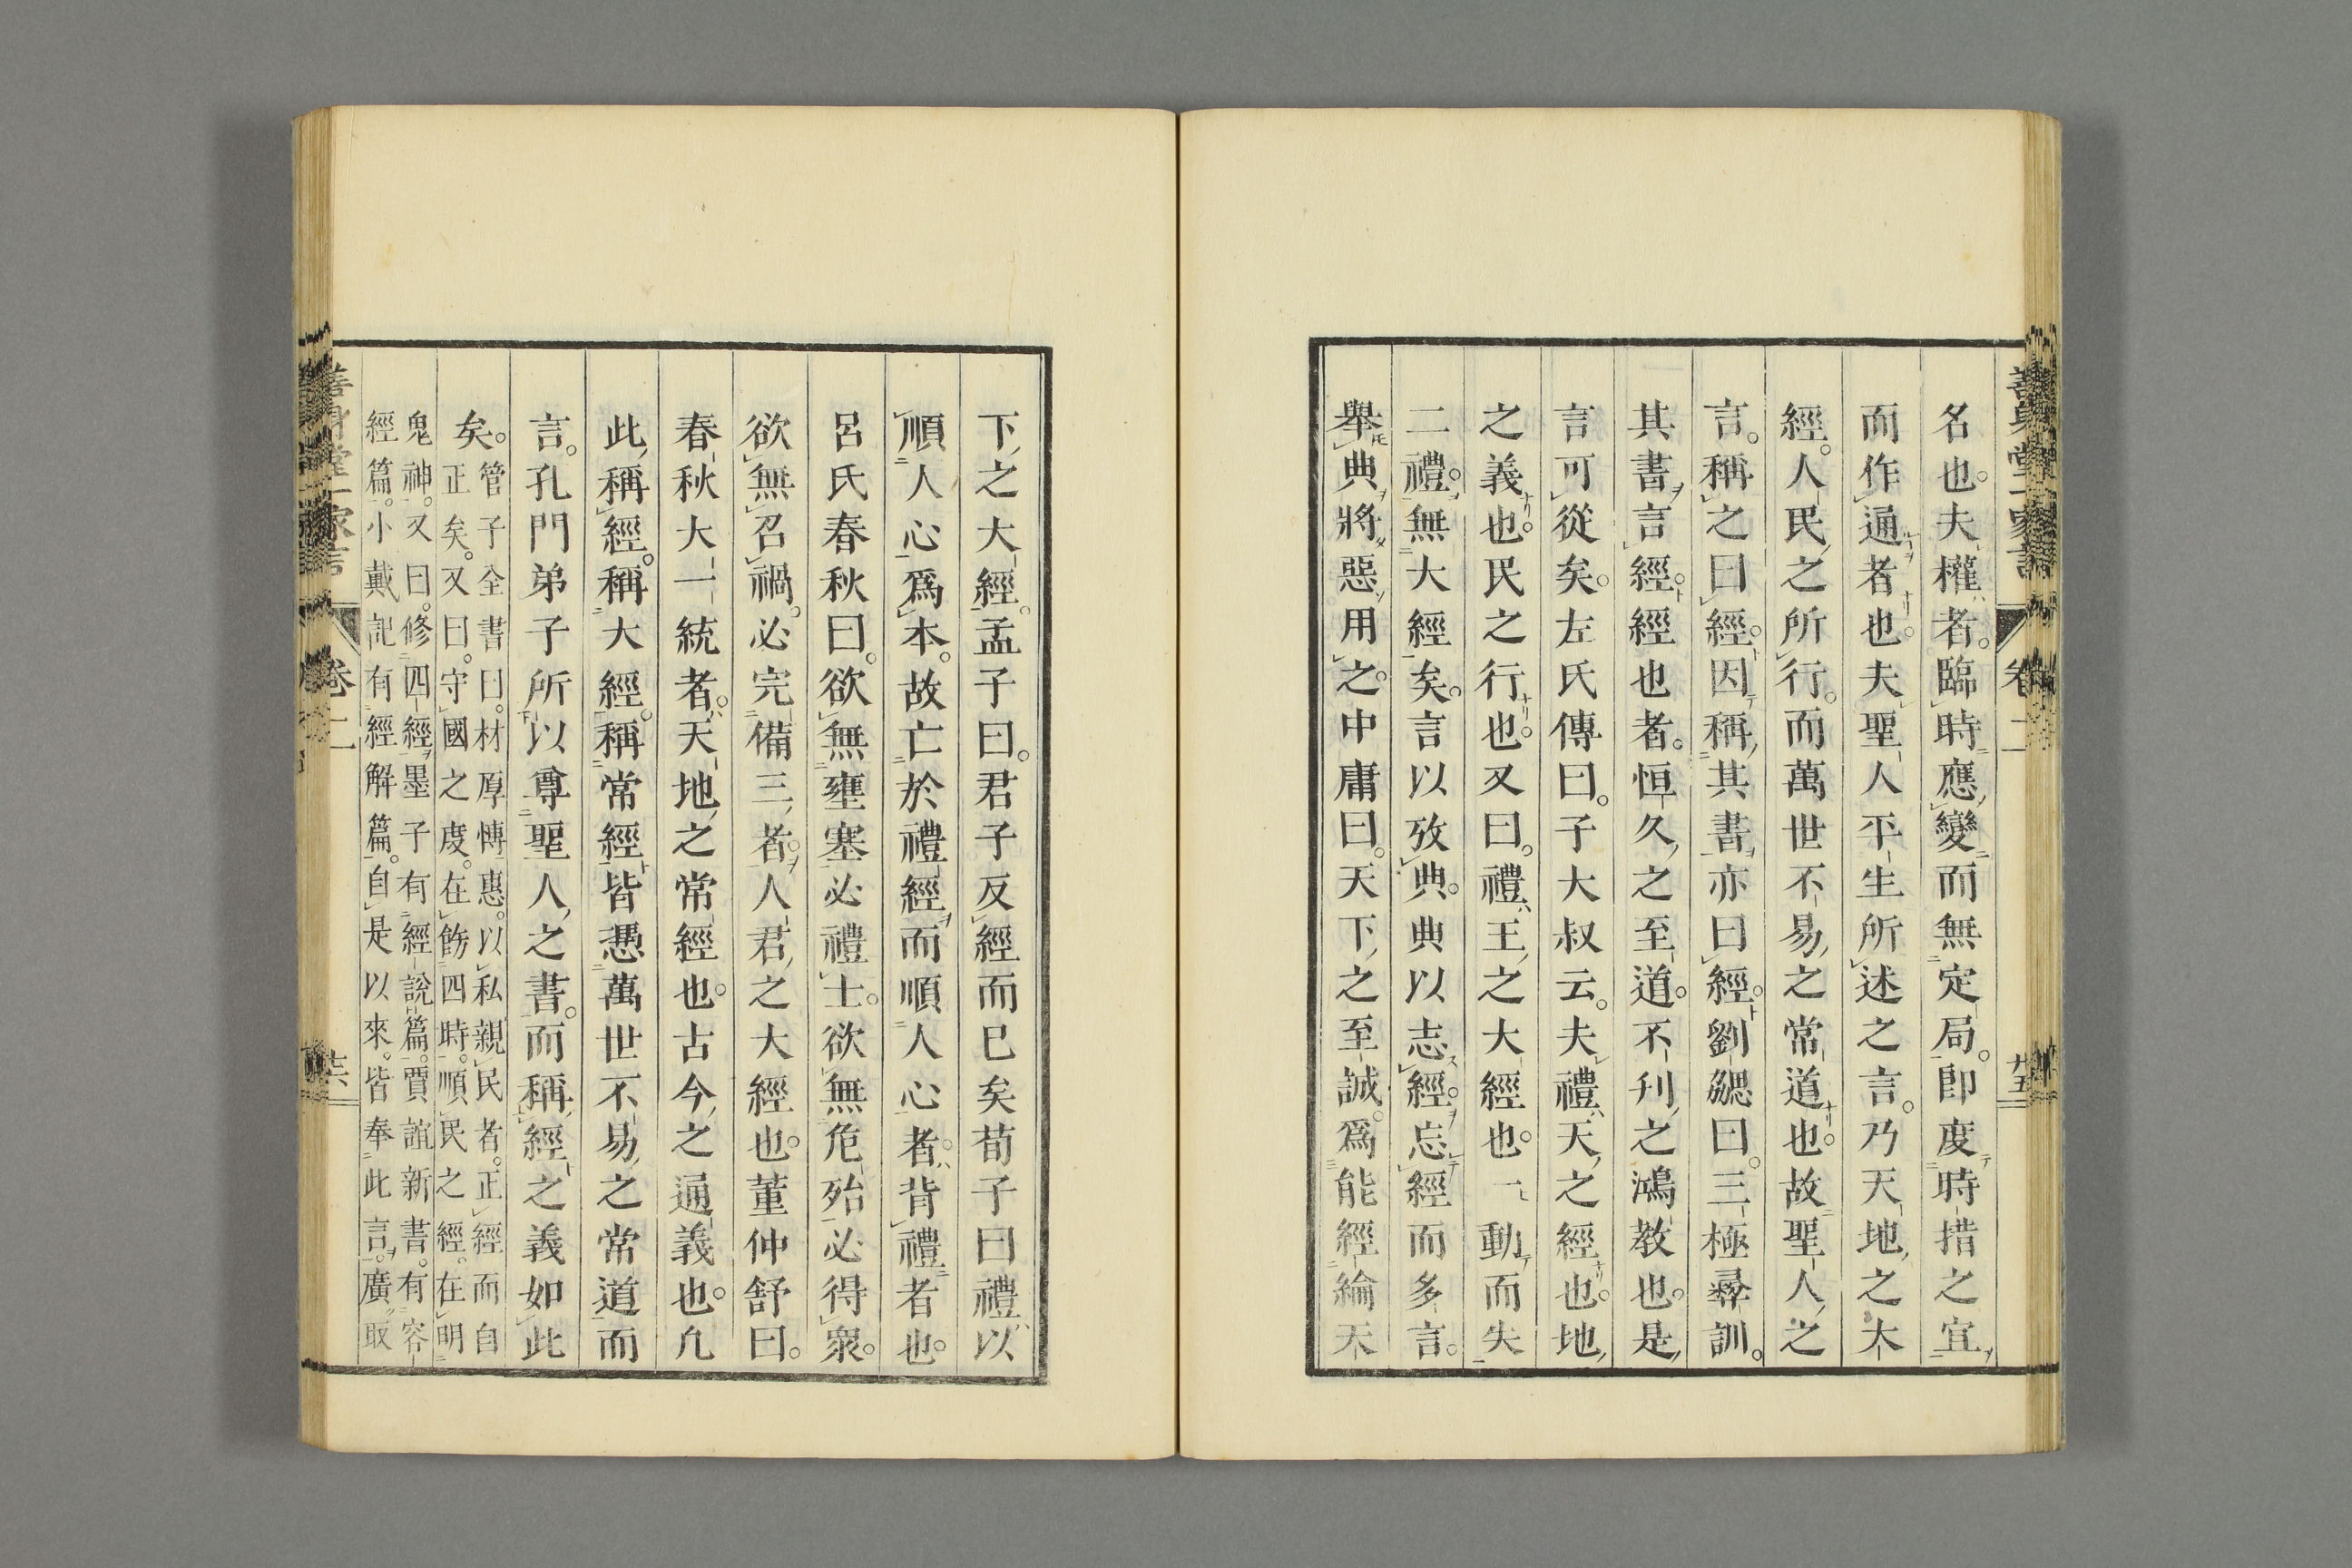 名也。夫權者。臨時應變而無定局。即度時措之宜
而作通者也。夫聖人平生所述之言。乃天地之大
經。人民之所行。而萬世不易之常道也。故聖人之
言。稱之曰經。因稱其書亦曰經。劉勰曰。三極彝訓。
其書言經。經也者。恒久之至道。不刊之鴻教也。是
言可從矣。左氏傳曰。子大叔云。夫禮天之經也。地
之義也。民之行也。又曰。禮王之大經也。一動而失
二禮。無大經矣。言以攷典。典以志經。忘經而多言。
舉典將惡用之。中庸曰。天下之至誠。爲能經綸天
善身堂一家言
卷二
廿五
下之大經。孟子曰。君子反經而已矣荀子曰禮以
順人心爲本。故亡於禮經而順人心者。背禮者也。
呂氏春秋曰。欲無壅塞必禮士。欲無危殆必得衆。
欲無召禍。必完備三者。人君之大經也。董仲舒曰。
春秋大一統者。天地之常經也。古今之通義也。凡
此稱經。稱大經。稱常經皆慿萬世不易之常道而
言。孔門弟子所以尊聖人之書。而稱經之義如此
矣。管子全書曰。材厚博惠。以私親民者。正經而自
正矣。又曰。守國之度。在飾四時。順民之經。在明
鬼神。又曰。修四經。墨子有經說篇。賈誼新書。有容
經篇。小戴記有經解篇。自是以來。皆奉此言。廣取
善身堂一家言
卷二